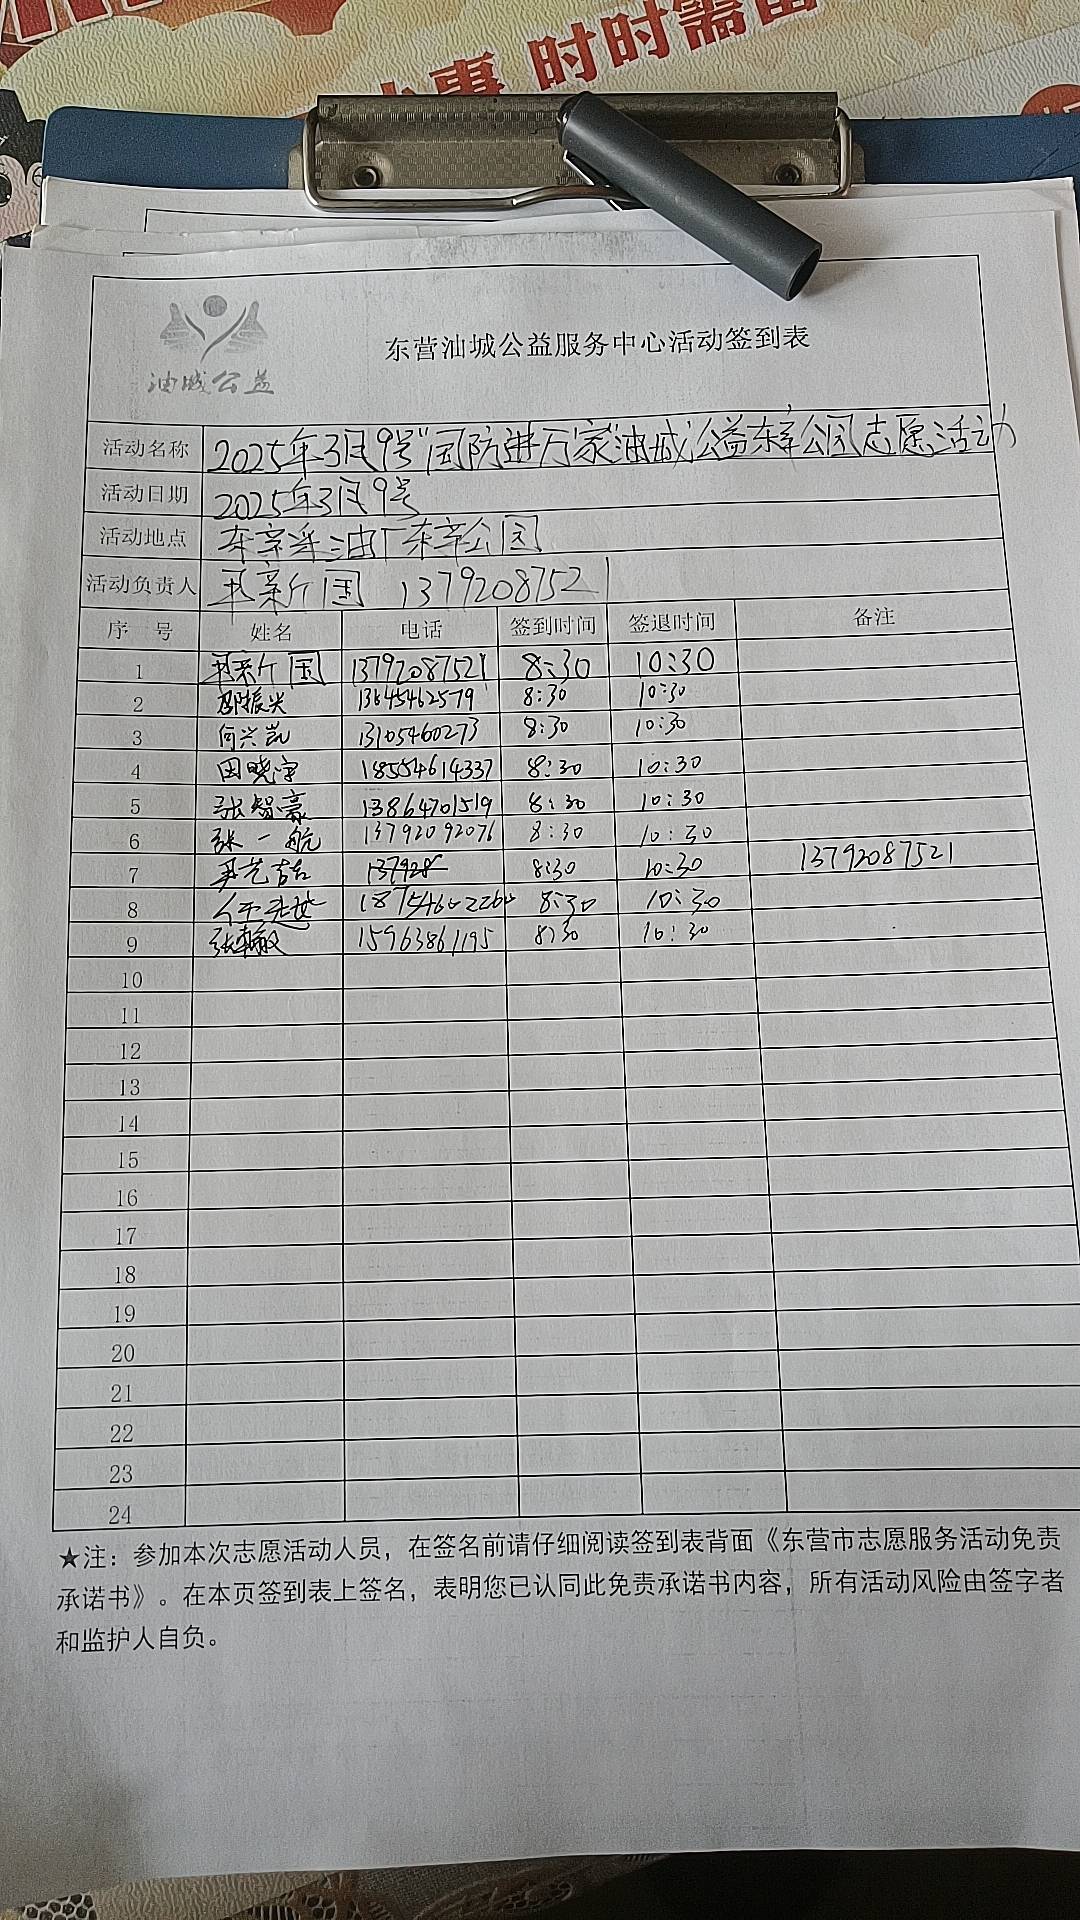 小惠 时时需留
油城公益
东营油城公益服务中心活动签到表
活动名称 2025年3月9号"国防进万家"油城公益东辛公园志愿活动
活动日期 2025年3月9号
活动地点 东辛采油厂东辛公园
活动负责人 新国 13792087521
序号 姓名 电话 签到时间 签退时间 备注
1 新国 13792087521 8:30 10:30
2 邵振兴 13645462579 8:30 10:30
3 何兴凯 13105460273 8:30 10:30
4 田晓宇 18554614337 8:30 10:30
5 张智豪 13864701519 8:30 10:30
6 张一航 13792092076 8:30 10:30
7 尹艺喆 8:30 10:30 13792087521
8 8:30 10:30
9 张敏 15963861195 8:30 10:30
10
11
12
13
14
15
16
17
18
19
20
21
22
23
24
★注：参加本次志愿活动人员，在签名前请仔细阅读签到表背面《东营市志愿服务活动免责
承诺书》。在本页签到表上签名，表明您已认同此免责承诺书内容，所有活动风险由签字者
和监护人自负。